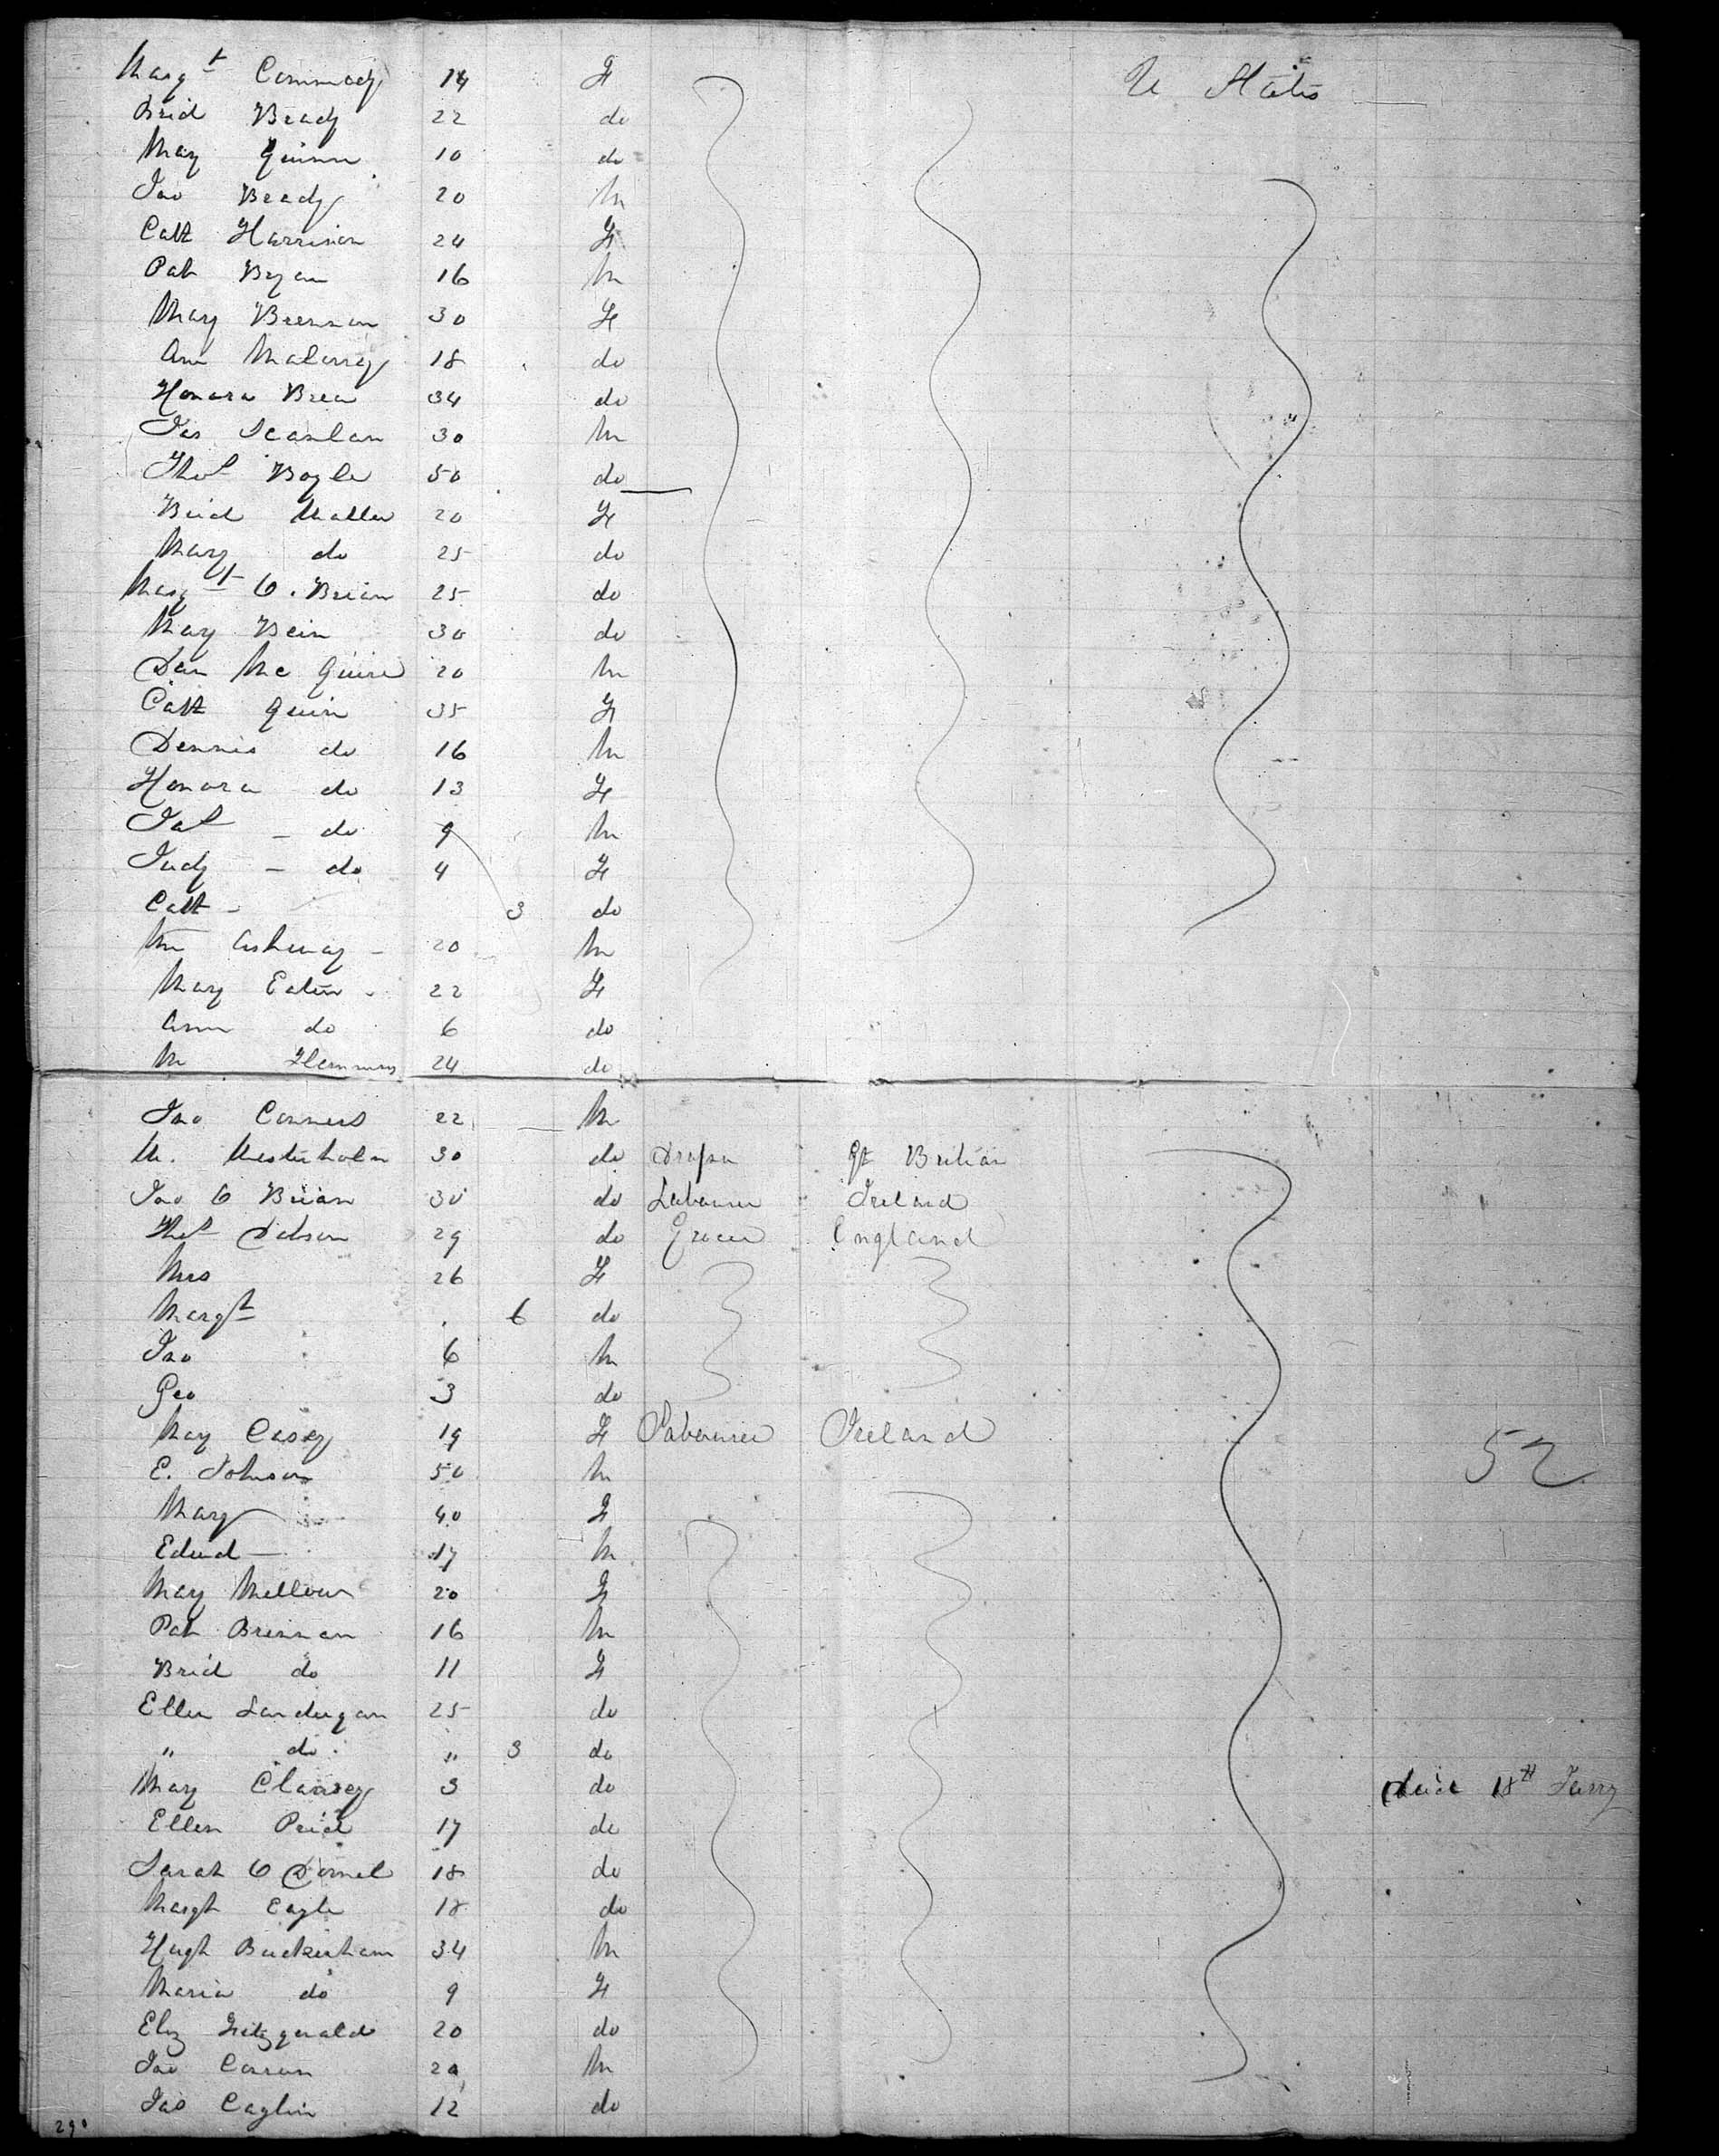 Margt Commody 14 F U States
Brid Brady 22 do
Mary Quinn 10 do
Jno Brady 20 M
Cath Harrison 24 F
Pat Bryan 16 M
Mary Brennan 30 F
Ann Maloney 18 do
Honora Brea 34 do
Jas Scanlan 30 M
Thos Boyle 50 do
Brid 20 F
Mary do 25 do
Margt O. Brian 25 do
Mary Bein 30 do
Dan Mc Guire 20 M
Cath Quin 35 F
Dennis do 16 M
Honora do 13 F
Pat - do 9 M
Judy - do 4 F
Cath - 3 do
Wm - 20 M
Mary Eaton 22 F
Ann do 6 do
M Flemmons 24 do
Jno Conners 22 M
M. Mesterholm 30 do Draper Gt Britian
Jno O Brian 30 do Labourer Ireland
Thos Dobson 29 do Grocer England
Mrs 26 F
Margt 6 do
Jno 6 M
Geo 3 do
Mary Casey 19 F Labourer Ireland
E. Johnson 50 M 52
Mary 40 F
Edwd - 17 M
Mary Mellour 20 F
Pat Brennan 16 M
Brid do 11 F
Ellen Landergan 25 do
" do " 3 do
Mary Clancey 3 do died 18th Jany
Ellen Price 17 do
Sarah O Donnel 18 do
Margt Eagle 18 do
Hugh Buckenham 34 M
Maria do 9 F
Eliz Fitzgerald 20 do
Jno Curran 20 M
Jas Caglin 12 do
290